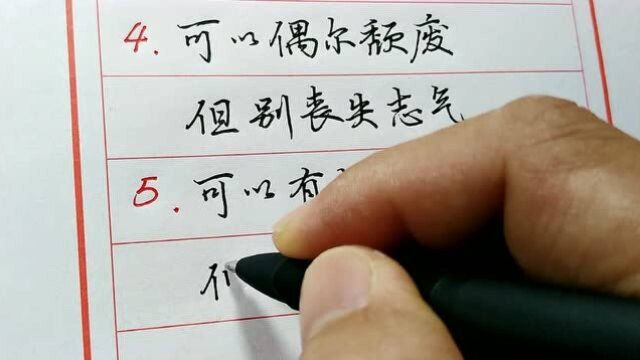 4. 可以偶尔颓废
但别丧失志气
5. 可以有